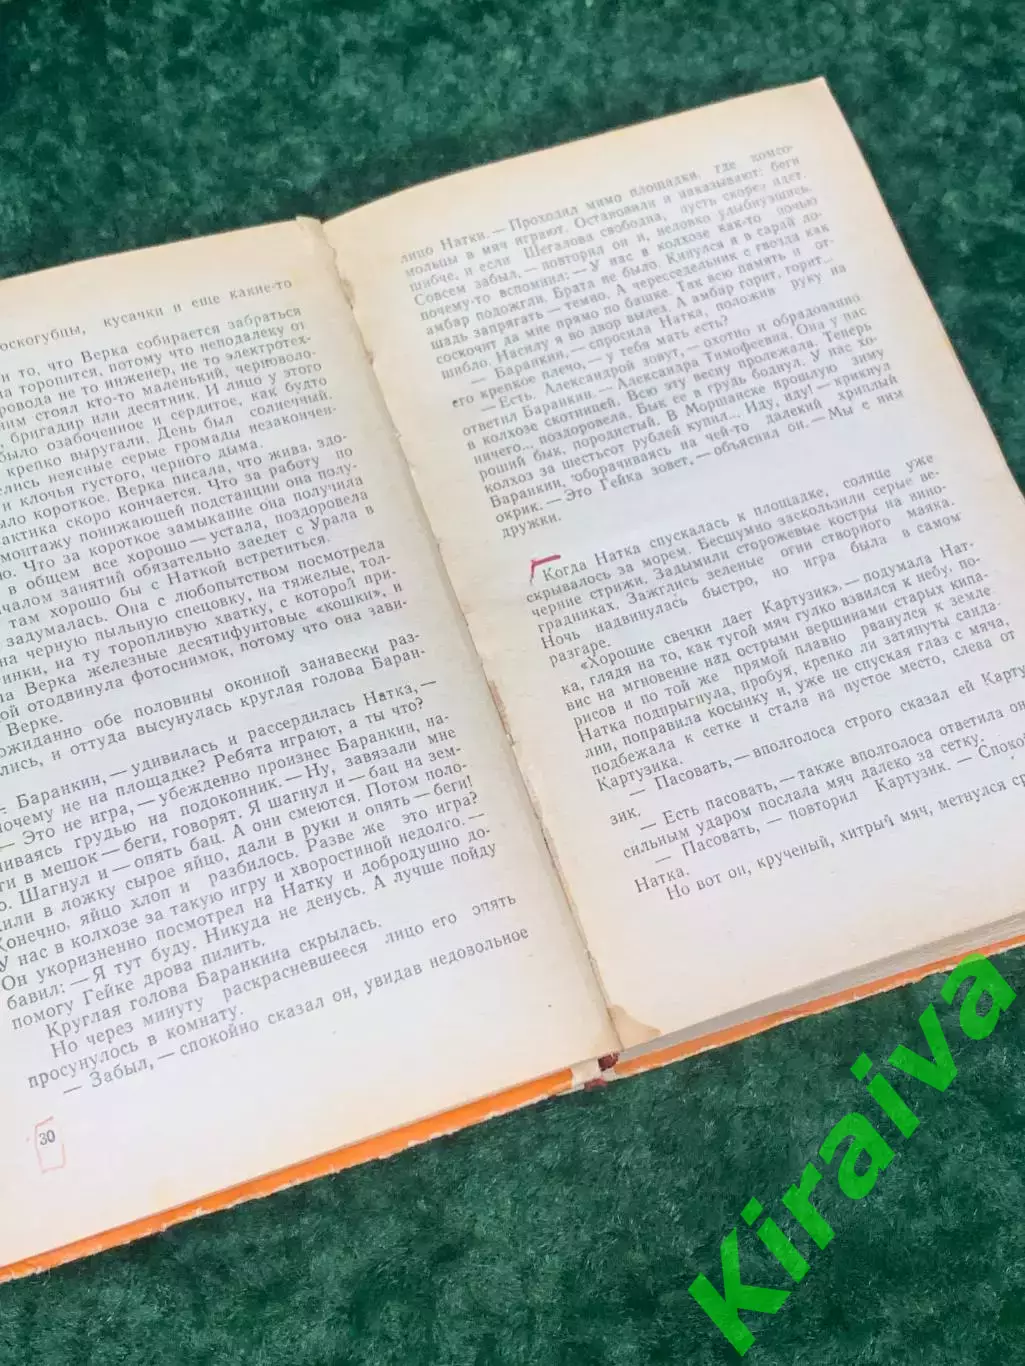 оскогубцы, кусачки и еще какие-то
и то, что Верка собирается забраться
на торопится, потому что неподалеку от
ровода не то инженер, не то электротех-
ним стоял кто-то маленький, черноволо-
бригадир или десятник. И лицо у этого
было озабоченное и сердитое, как будто
крепко выругали. День был солнечный,
лись неясные серые громады незакончен-
и клочья густого, черного дыма.
ло короткое. Верка писала, что жива, здо-
актика скоро кончается. Что за работу по
монтажу понижающей подстанции она полу-
ю. Что за короткое замыкание она получила
в общем все хорошо — устала, поздоровела
чалом занятий обязательно заедет с Урала в
там хорошо бы с Наткой встретиться.
задумалась. Она с любопытством посмотрела
на черную пыльную спецовку, на тяжелые, тол-
инки, на ту торопливую хватку, с которой при-
ла Верка железные десятифунтовые «кошки», и
ой отодвинула фотоснимок, потому что она зави-
Верке.
ожиданно обе половины оконной занавески раз-
лись, и оттуда высунулась круглая голова Баран-
— Баранкин, — удивилась и рассердилась Натка, —
почему не на площадке? Ребята играют, а ты что?
— Это не игра, — убежденно произнес Баранкин, на-
ливаясь грудью на подоконник. — Ну, завязали мне
ги в мешок — беги, говорят. Я шагнул и — бац на зем-
ю. Шагнул и — опять бац. А они смеются. Потом поло-
жили в ложку сырое яйцо, дали в руки и опять — беги!
Конечно, яйцо хлоп и разбилось. Разве же это игра?
У нас в колхозе за такую игру и хворостиной недолго. —
Он укоризненно посмотрел на Натку и добродушно до-
бавил: — Я тут буду. Никуда не денусь. А лучше пойду
помогу Гейке дрова пилить.
Круглая голова Баранкина скрылась.
Но через минуту раскрасневшееся лицо его опять
просунулось в комнату.
— Забыл, — спокойно сказал он, увидав недовольное
30
лицо Натки. — Проходил мимо площадки, где комсо-
мольцы в мяч играют. Остановили и наказывают: беги
шибче, и если Шегалова свободна, пусть скорее идет.
Совсем забыл, — повторил он и, неловко улыбнувшись,
почему-то вспомнил: — У нас в колхозе как-то ночью
амбар подожгли. Брата не было. Кинулся я в сарай ло-
шадь запрягать — темно. А чересседельник с гвозда как
соскочит да мне прямо по башке. Так всю память и от-
шибло. Насилу я во двор вылез. А амбар горит, горит...
— Баранкин, — спросила Натка, положив руку на
его крепкое плечо, — у тебя мать есть?
— Есть. Александрой зовут, — охотно и обрадованно
ответил Баранкин. — Александра Тимофеевна. Она у нас
в колхозе скотницей. Всю эту весну пролежала. Теперь
ничего... поздоровела. Бык ее в грудь боднул. У нас хо-
роший бык, породистый. В Моршанске прошлую зиму
колхоз за шестьсот рублей купил... Иду, иду! — крикнул
Баранкин, оборачиваясь на чей-то далекий хриплый
окрик. — Это Гейка зовет, — объяснил он. — Мы с ним
дружки.
Когда Натка спускалась к площадке, солнце уже
скрывалось за морем. Бесшумно заскользили серые ве-
черние стрижи. Задымили сторожевые костры на вино-
градниках. Зажглись зеленые огни створного маяка.
Ночь надвинулась быстро, но игра была в самом
разгаре.
«Хорошие свечки дает Картузик», — подумала Нат-
ка, глядя на то, как тугой мяч гулко взвился к небу, по-
вис на мгновение над острыми вершинами старых кипа-
рисов и по той же прямой плавно рванулся к земле
Натка подпрыгнула, пробуя, крепко ли затянуты санда-
лии, поправила косынку и, уже не спуская глаз с мяча,
подбежала к сетке и стала на пустое место, слева от
Картузика.
— Пасовать, — вполголоса строго сказал ей Карту
зик.
— Есть пасовать, — также вполголоса ответила он
сильным ударом послала мяч далеко за сетку.
— Пасовать, — повторил Картузик. — Спокой
Натка.
Но вот он, крученый, хитрый мяч, метнулся ср
Kiraiva